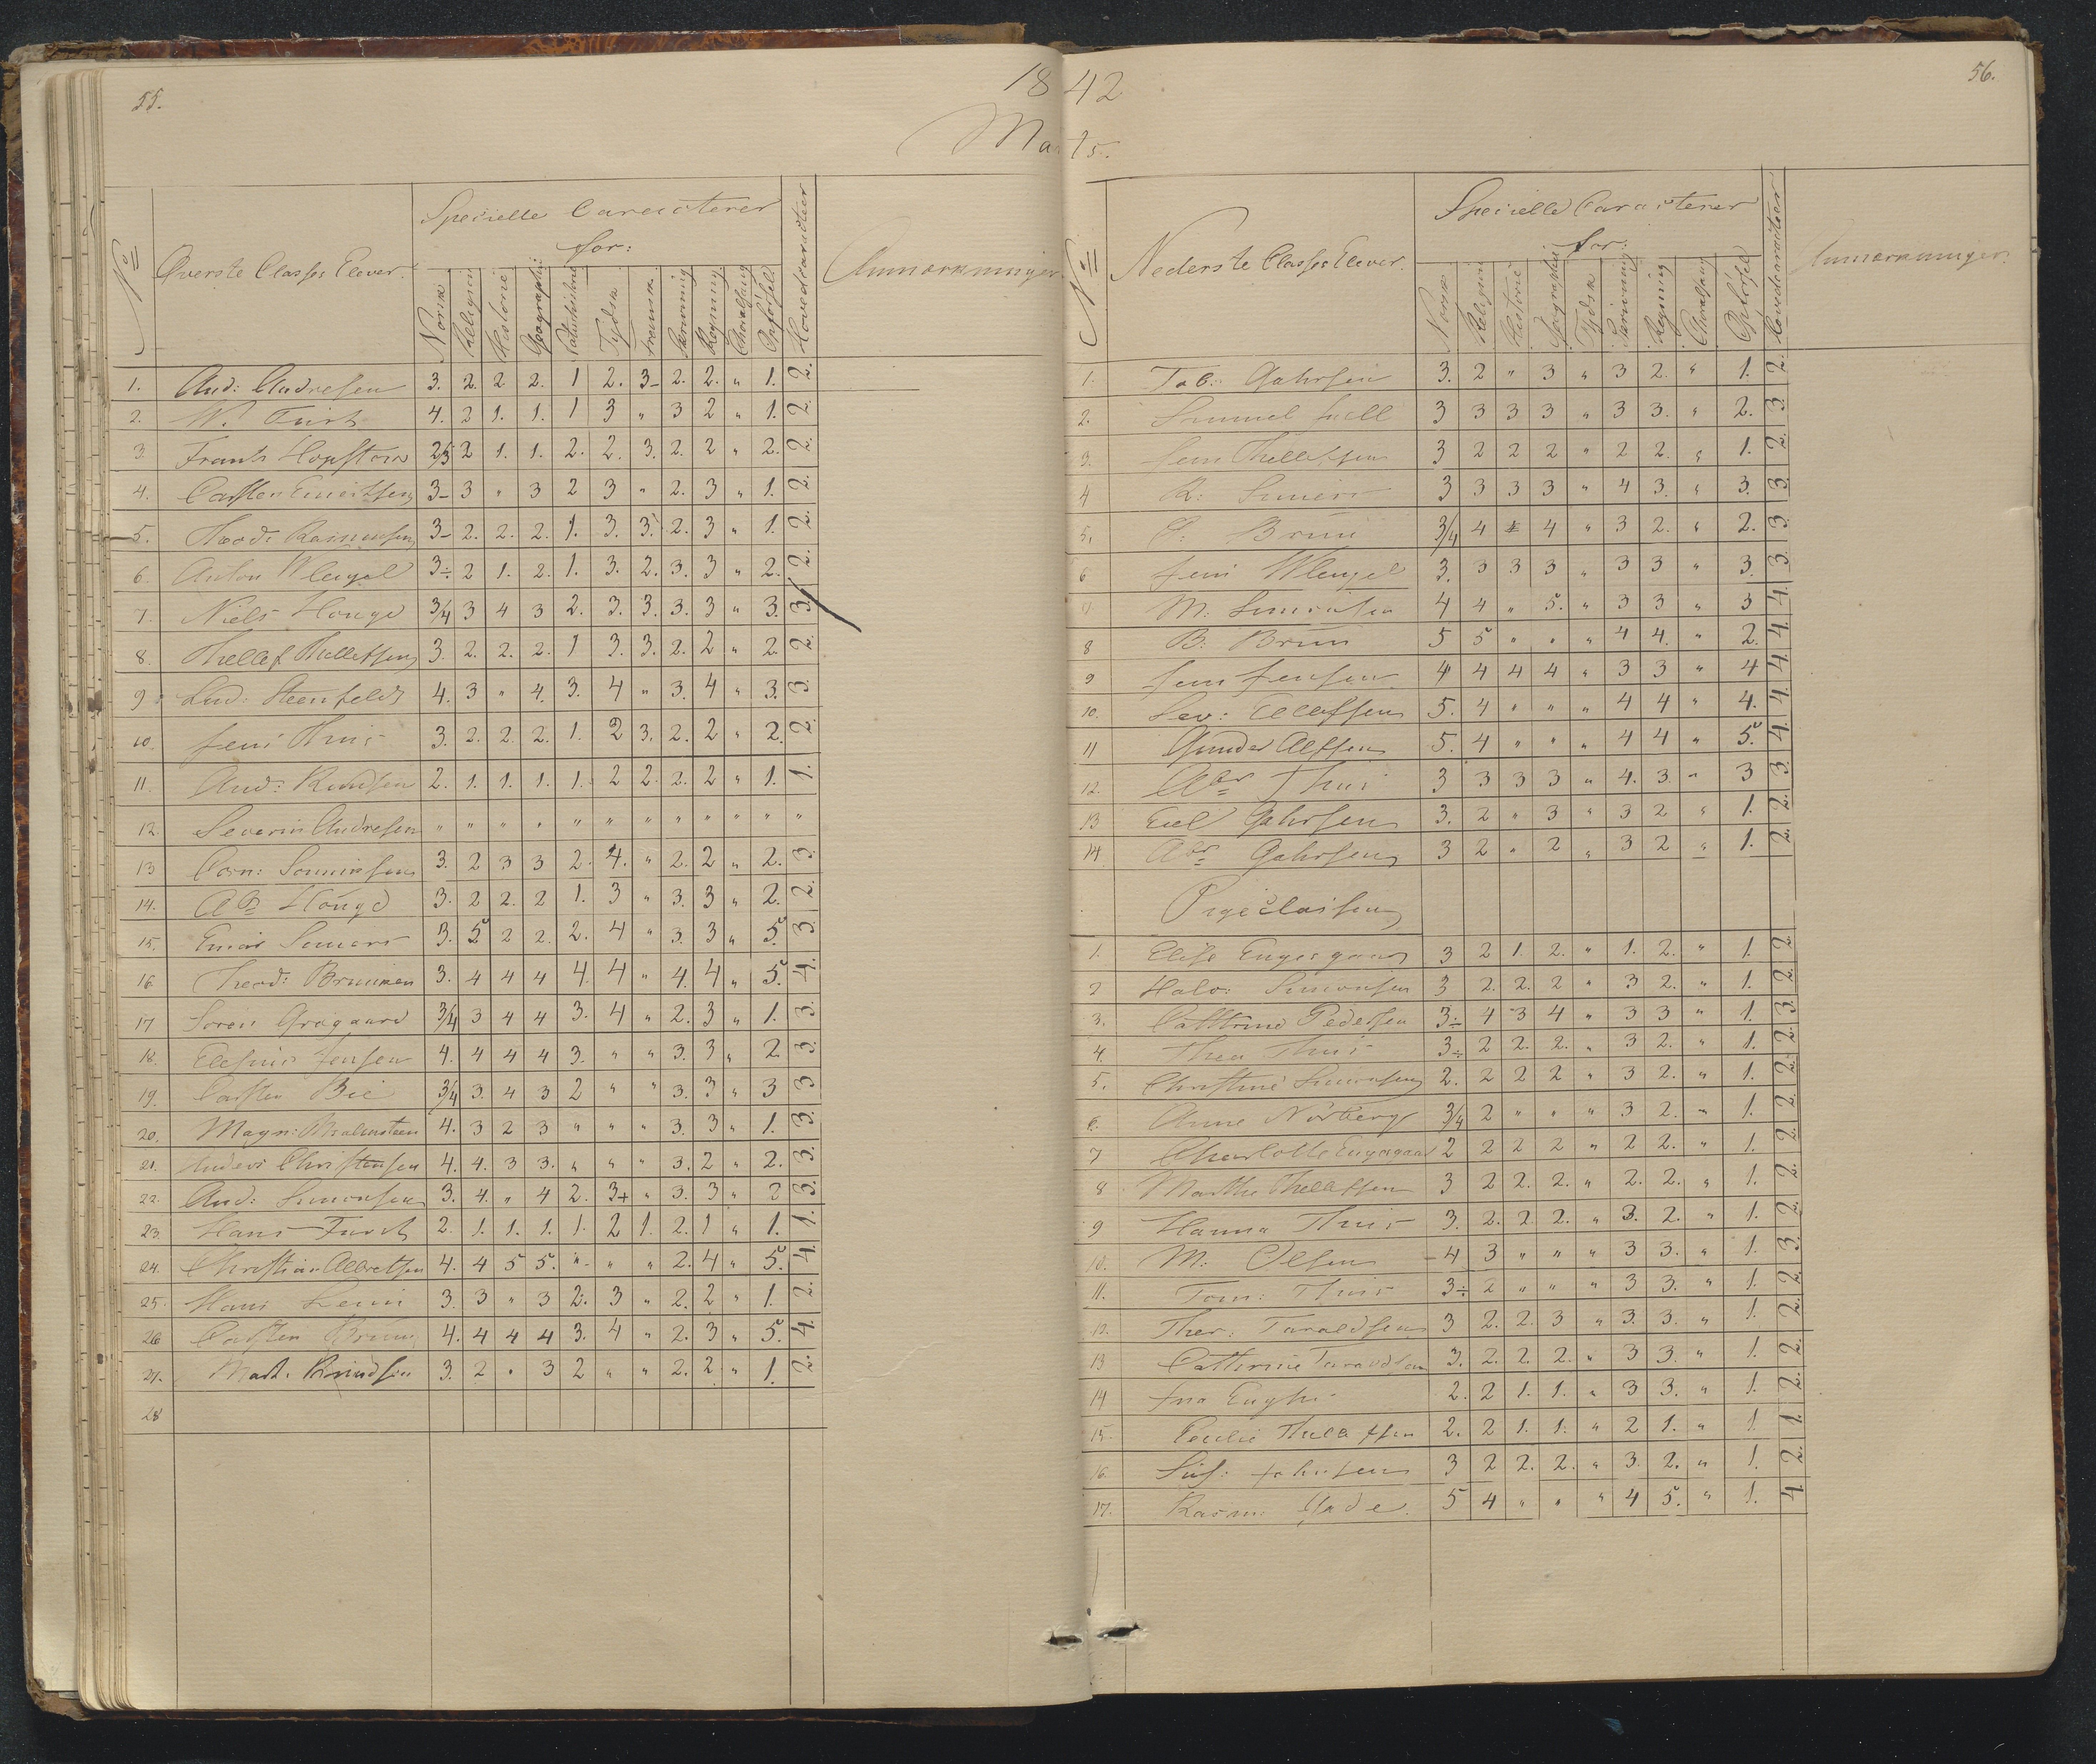 55.
18
Ma
No
Øverste Classes Elever.
Specielle Caracterer
for:
Norsk
Religion
Historie
Geographi
Naturhistorie
Tydsk
Fransk
Skrivning
Regning
Choralsang
Opførsel
Hovedcaracteer
Anmærkninger
1. And: Andresen 3. 2. 2 2. 1 2. 3- 2. 2. " 1. 2.
2. N. Fürst 4. 2 1. 1. 1 3 " 3 2 " 1. 2.
3. Frants Hopstoc 2/3 2 1. 1. 2. 2. 3. 2. 2 " 2. 2.
4. Carsten 3- 3 " 3 2 3 " 2. 3 " 1. 2.
5. Theod: Rasmusen 3- 2. 2. 2. 1. 3. 3. 2. 3 " 1. 2.
6. Anton Wlengel 3÷ 2 1. 2. 1. 3. 2. 3. 3 " 2. 2.
7. Niels Houge 3/4 3 4 3 2. 3. 3. 3. 3 " 3. 3.
8. Thellef Thellefsen 3. 2. 2. 2. 1 3. 3. 2. 2 " 2. 2.
9 Lud: Steenfeldt 4. 3 " 4. 3. 4 " 3. 4 " 3. 3.
10. Jens Thuis 3. 2. 2. 2. 1. 2 3. 2. 2 " 2. 2.
11. And: Knudsen 2. 1. 1. 1. 1. 2 2. 2. 2 " 1. 1.
12. Severin Andresen " " " " " " " " " " " "
13 Corn: 3. 2 3 3 2. 4. " 2. 2 " 2. 3.
14. Houge 3. 2 2. 2 1. 3 " 3. 3 " 2. 2.
15. 3. 5 2 2. 2. 4 " 3. 3 " 5. 3.
16. Theod: 3. 4 4 4 4. 4 " 4. 4 " 5. 4.
17 Søren Grøgaard 3/4 3 4 4 3. 4 " 2. 3 " 1. 3.
18. Jensen 4. 4 4 4 3. " " 3. 3 " 2 3.
19. Carsten Bie 3/4 3. 4 3 2 " " 3. 3 " 3 3
20. Magn: 4. 3 2 3 " " " 3. 3 " 1. 3.
21. Anders Christensen 4. 4. 3 3. " " " 3. 2 " 2. 3.
22. And: Simonsen 3. 4. " 4 2. 3+ " 3. 3 " 2 3.
23. Hans Fürst 2. 1. 1. 1. 1. 2 1. 2. 1 " 1. 1.
24. Christian Albretsen 4. 4 5 5. " " " 2. 4 " 5. 4.
25. Hans 3. 3 " 3 2. 3 " 2. 2 " 1. 2.
26 Carsten Bruun 4. 4 4 4 3. 4 " 2. 3 " 5. 4.
27. Mart. Knudsen 3. 2 " 3 2 " " 2. 2 " 1. 2.
28
56.
42
rts.
No
Nederste Classes Elever.
Specielle Caracterer
for:
Norsk
Religion
Historie
Geographi
Tydsk
Skrivning
Regning
Choralsang
Opførsel
Hovedcaracteer
Anmærkninger.
1. Tob: Gahrsen 3. 2 " 3 " 3 2. " 1. 2.
2. Samuel 3 3 3 3 " 3 3. " 2. 3.
3. Jens Thellefsen 3 2 2 2 " 2 2. " 1. 2.
4 R: 3 3 3 3 " 4 3. " 3. 3.
5. Bruun 3/4 4 4 4 " 3 2. " 2. 3.
6 Jens Wlengel 3. 3 3 3 " 3 3 " 3. 3.
7. M. Simonsen 4 4 " 5. " 3 3 " 3 4.
8 B: Bruun 5 5 " " " 4 4. " 2. 4.
9 Jens Jensen 4 4 4 4 " 3 3 " 4 4.
10. Sev: Ellefsen 5. 4 " " " 4 4 " 4. 4.
11 Gunder Alfsen 5. 4 " " " 4 4 " 5. 4.
12. Abr Thuis 3 3 3 3 " 4. 3 " 3 3.
13 Gahrsen 3. 2 " 3 " 3 2 " 1. 2.
14. Abr Gahrsen 3 2 " 2 " 3 2 " 1. 2.
Pigeclassen
1. Elise Engesgaar 3 2 1. 2. " 1. 2. " 1. 2.
2 Halv: Simonsen 3 2. 2. 2 " 3 2. " 1. 2.
3. Cathrine Pedersen 3÷ 4 3 4 " 3 3 " 1. 3.
4. Thea Thuis 3÷ 2 2. 2. " 3 2. " 1. 2.
5. Christine Simonsen 2. 2 2 2 " 3 2. " 1. 2.
6. Anne Norberg 3/4 2 " " " 3 2. " 1. 2.
7 Charlotte Engesgaar 2 2 2 2 " 2 2. " 1. 2.
8 Marthe Thellefsen 3 2 2. 2. " 2. 2. " 1. 2.
9 Hanna Thuis 3. 2. 2. 2. " 3. 2. " 1. 2.
10. M: Olsen 4 3 " " " 3 3. " 1. 3.
11. Tom: Thuis 3÷ 2 " " " 3 3. " 1. 2.
12. Ther: Taraldsen 3 2. 2. 3 " 3. 3. " 1. 2.
13 Cathrine Taraldsen 3. 2. 2. 2. " 3 3. " 1. 2.
14 2. 2 1. 1. " 3 3. " 1. 2.
15. Thellefsen 2. 2 1. 1. " 2 1. " 1. 1.
16. 3 2 2. 2. " 3. 2. " 1. 2.
17. Rasm: Gade. 5 4 " " " 4 5. " 1. 4.